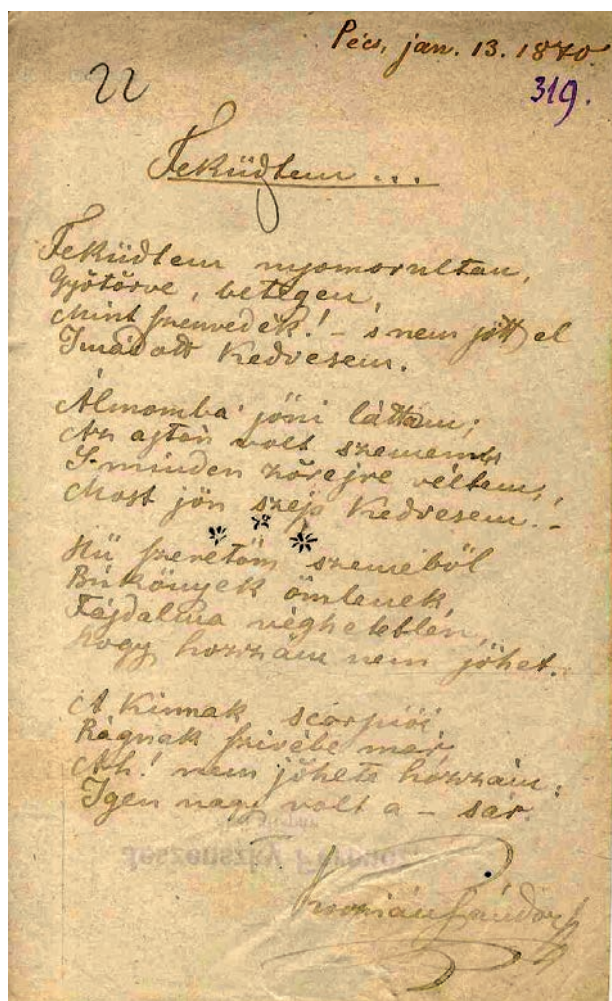 Pécs, jan. 13. 1870.
22
319.
Feküdtem ...
Feküdtem nyomorultan,
Gyötörve, betegen,
Mint szenvedék! – s nem jött el
Imádott Kedvesem.
Álmomba' jöni láttam;
Az ajtón volt szemem,
S minden zörejre véltem,
Most jön szép Kedvesem. –
* * *
Hű szeretőm szeméből
Búkönyek ömlenek,
Fájdalma véghetetlen,
Hogy hozzám nem jöhet.
A Kinnak scorpiói
Rágnak szivébe már,
Ah! nem jöhete hozzám:
Igen nagy volt a – sár.
Sándor